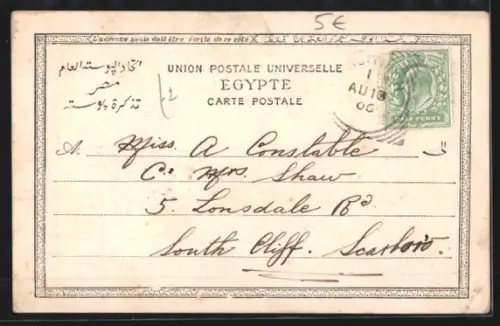 5€
L'adresse seule doit être écrite de ce côté
اتحاد البوسته العام
مصر
تذكرة بوسته
UNION POSTALE UNIVERSELLE
EGYPTE
CARTE POSTALE
1
AU 18
06
HALF PENNY
A. Miss. A Constable
Co Mrs. Shaw
5. Lonsdale Rd
South Cliff. Scarboro.